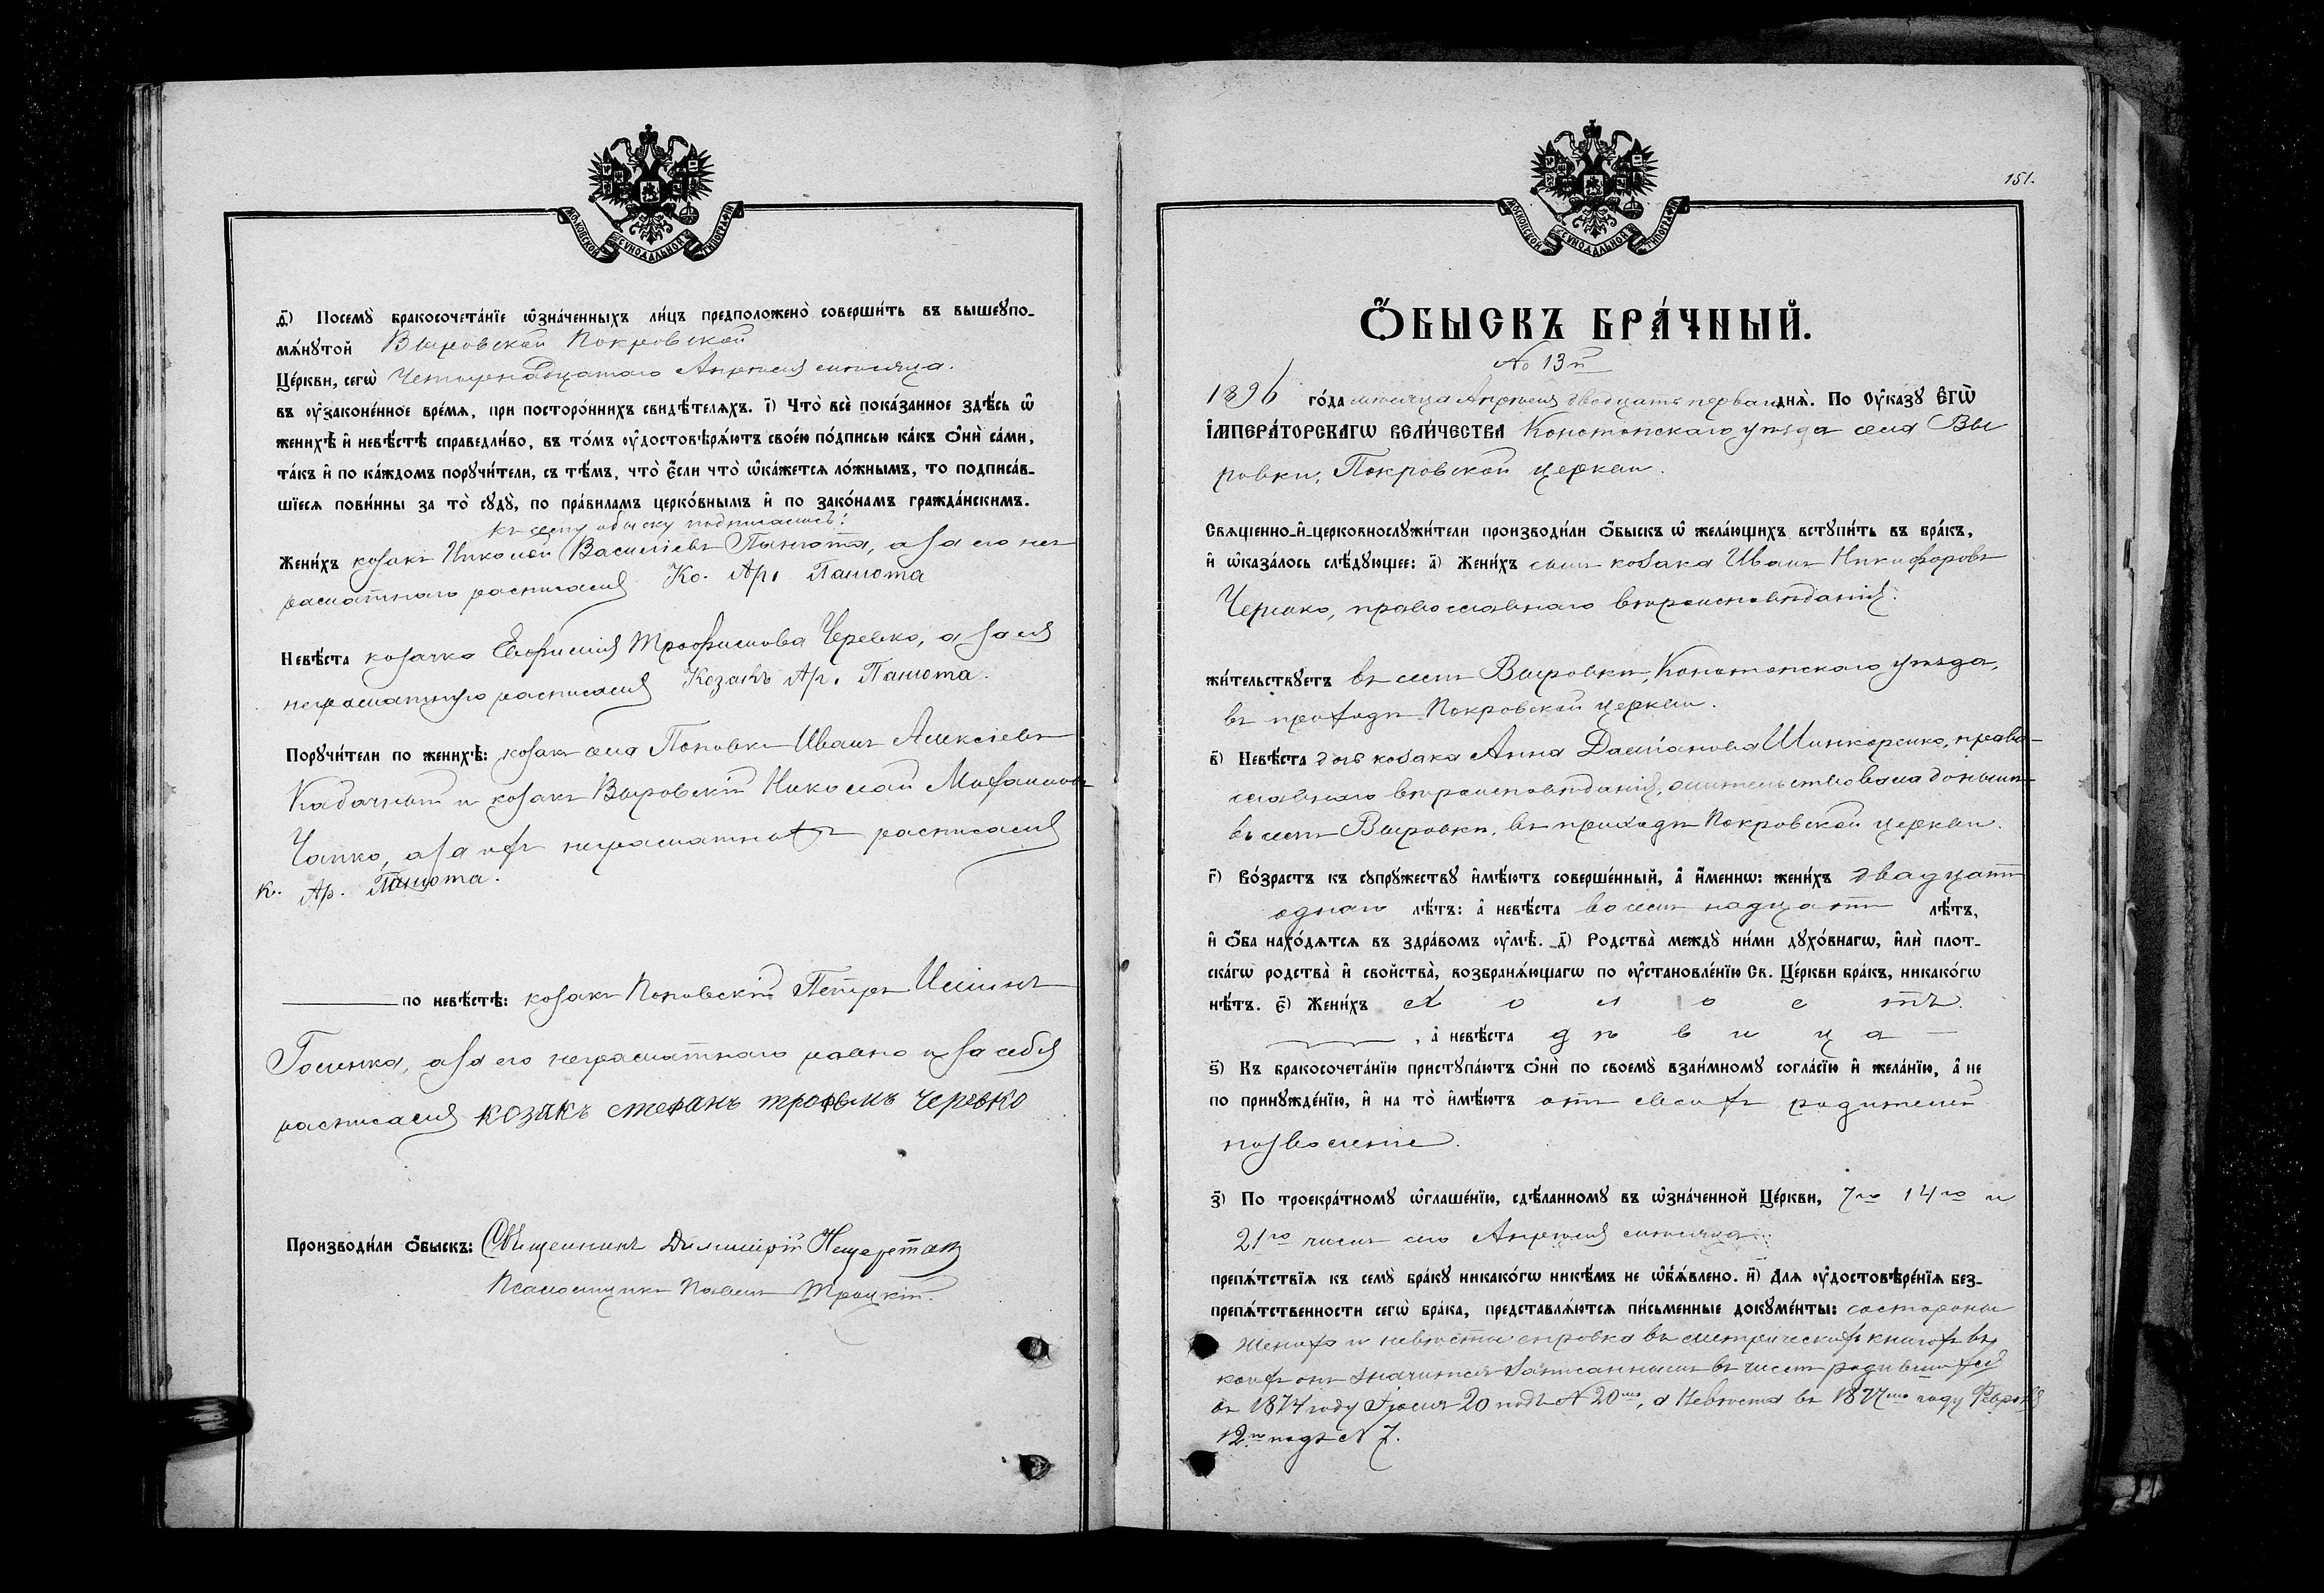 МОСКОВСКОЙ СѴНОДАЛЬНОЙ ТИПОГРАФІИ
д҃) Посемꙋ̀ бракосочета́нїе ѡ҆зна́ченныхъ ли́цъ предположено̀ соверши́ть въ вышеꙋпо-
мѧ́нꙋтой Выровской Покровской
Це́ркви, сегѡ̀ Четырнадцатаго Апрѣля мѣсяца.
въ ᲂу҆законе́нное вре́мѧ, при посторо́ннихъ свидѣ́телѧхъ. і҃) Что̀ всѐ пока́занное здѣ́сь ѡ҆
женихѣ̀ и҆ невѣ́стѣ справедли́во, въ то́мъ ᲂу҆достовѣрѧ́ютъ свое́ю по́дписью ка́къ ѻ҆нѝ са́ми,
та́къ и҆ по ка́ждомъ порꙋчи́тели, съ тѣ́мъ, что̀ є҆́сли что̀ ѡ҆ка́жетсѧ ло́жнымъ, то подписа́в-
шїесѧ пови́нны за то̀ сꙋдꙋ̀, по пра́виламъ церко́внымъ и҆ по зако́намъ гражда́нскимъ.
къ сему обыску подписались:
Жени́хъ козакъ Николай Васильевъ Панюта, а за его не
грамотнаго росписался Ко. Ар. Панюта
Невѣ́ста козачка Евфимія Трофимова Черевко, а за ея
неграмотную росписался Козакъ Ар. Панюта.
Порꙋчи́тели по женихѣ̀: козакъ села Поповки Иванъ Алексіевъ
Кабачный и козакъ Выровскій Николай
Чапко, а за ихъ неграмотныхъ росписался
К. Ар. Панюта.
по невѣ́стѣ: козакъ Поповскій Петръ
а за его неграмотнаго равно и за себя
росписался козакъ стефанъ трофымъ Черевко
Производи́ли ѻ҆́быскъ: Священникъ Димитрій Нещеретовъ
Псаломщикъ Павелъ Троцкій.
151.
МОСКОВСКОЙ СѴНОДАЛЬНОЙ ТИПОГРАФІИ
Ѻ҆́БЫСКЪ БРА́ЧНЫЙ.
№ 13й
1896 го́да мѣсяца Апрѣля двадцать перваго днѧ̀. По ᲂу҆ка́зꙋ Є҆ГѠ̀
І҆МПЕРА́ТОРСКАГѠ ВЕЛИ́ЧЕСТВА Конотопскаго уѣзда села Вы
ровки, Покровской церкви.
Свѧщенно-и҆-церковнослꙋжи́тели производи́ли ѻ҆́быскъ ѡ҆ жела́ющихъ встꙋпи́ть въ бра́къ,
и҆ ѡ҆каза́лось слѣ́дꙋющее: а҃) Жени́хъ сынъ козака Иванъ Никифоровъ
православнаго вѣроисповѣданія.
жи́тельствꙋетъ въ селѣ Выровкѣ, Конотопскаго уѣзда,
въ приходѣ Покровской церкви.
в҃) Невѣ́ста дочь козака Анна Даміанова Шинкаренко, право-
славнаго вѣроисповѣданія, жительствовала донынѣ
въ селѣ Выровкѣ, въ приходѣ Покровской церкви.
г҃) Во́зрастъ къ сꙋпрꙋ́жествꙋ и҆мѣ́ютъ соверше́нный, а҆ и҆́меннѡ: жени́хъ двадцати
одного лѣ́тъ: а҆ невѣ́ста восемнадцати лѣ́тъ,
и҆ ѻ҆́ба нахо́дѧтсѧ въ здра́вомъ ᲂу҆мѣ̀. д҃) Родства̀ междꙋ̀ ни́ми дꙋхо́внагѡ, и҆лѝ плот-
ска́гѡ родства̀ и҆ свойства̀, возбранѧ́ющагѡ по ᲂу҆становле́нїю Св. Це́ркви бра́къ, никако́гѡ
нѣ́тъ. є҃) Жени́хъ холостъ
, а҆ невѣ́ста дѣвица
ѕ҃) Къ бракосочета́нїю пристꙋпа́ютъ ѻ҆нѝ по своемꙋ̀ взаи́мномꙋ согла́сїю и҆ жела́нїю, а҆ не
по принꙋжде́нїю, и҆ на то̀ и҆мѣ́ютъ отъ своихъ родителей
позволеніе.
з҃) По троекра́тномꙋ ѡ҆глаше́нїю, сдѣ́ланномꙋ въ ѡ҆зна́ченной Це́ркви, 7го 14го и
21го чиселъ сего Апрѣля мѣсяца
препѧ́тствїѧ къ семꙋ̀ бра́кꙋ никако́гѡ никѣ́мъ не ѡ҆б̾ѧ́влено. и҃) Длѧ ᲂу҆достовѣре́нїѧ без-
препѧ́тственности сегѡ̀ бра́ка, представлѧ́ютсѧ пи́сьменные докꙋме́нты: состороны
жениха и невѣсты справка въ метрическихъ книгахъ въ
коихъ онъ значится записаннымъ въ числѣ родившихся
въ 1874 году Іюня 20 подъ № 20мъ, а Невѣста въ 1877мъ году Февраля
12го подъ № 7.